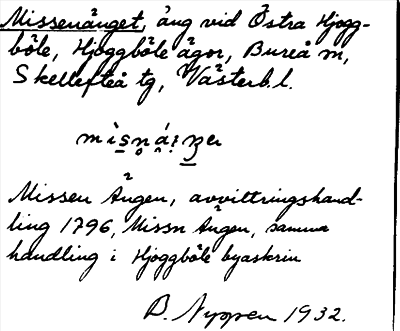 Missenänget, äng vid Östra Hjogg-
böle, Hjoggböle ägor, Bureå sn,
Skellefteå tg, Västerb.l.
Missen Ängen, avvittringshand-
ling 1796, Missn Ängen, samma
handling i Hjoggböle byaskrin
B. Nyppen 1932.